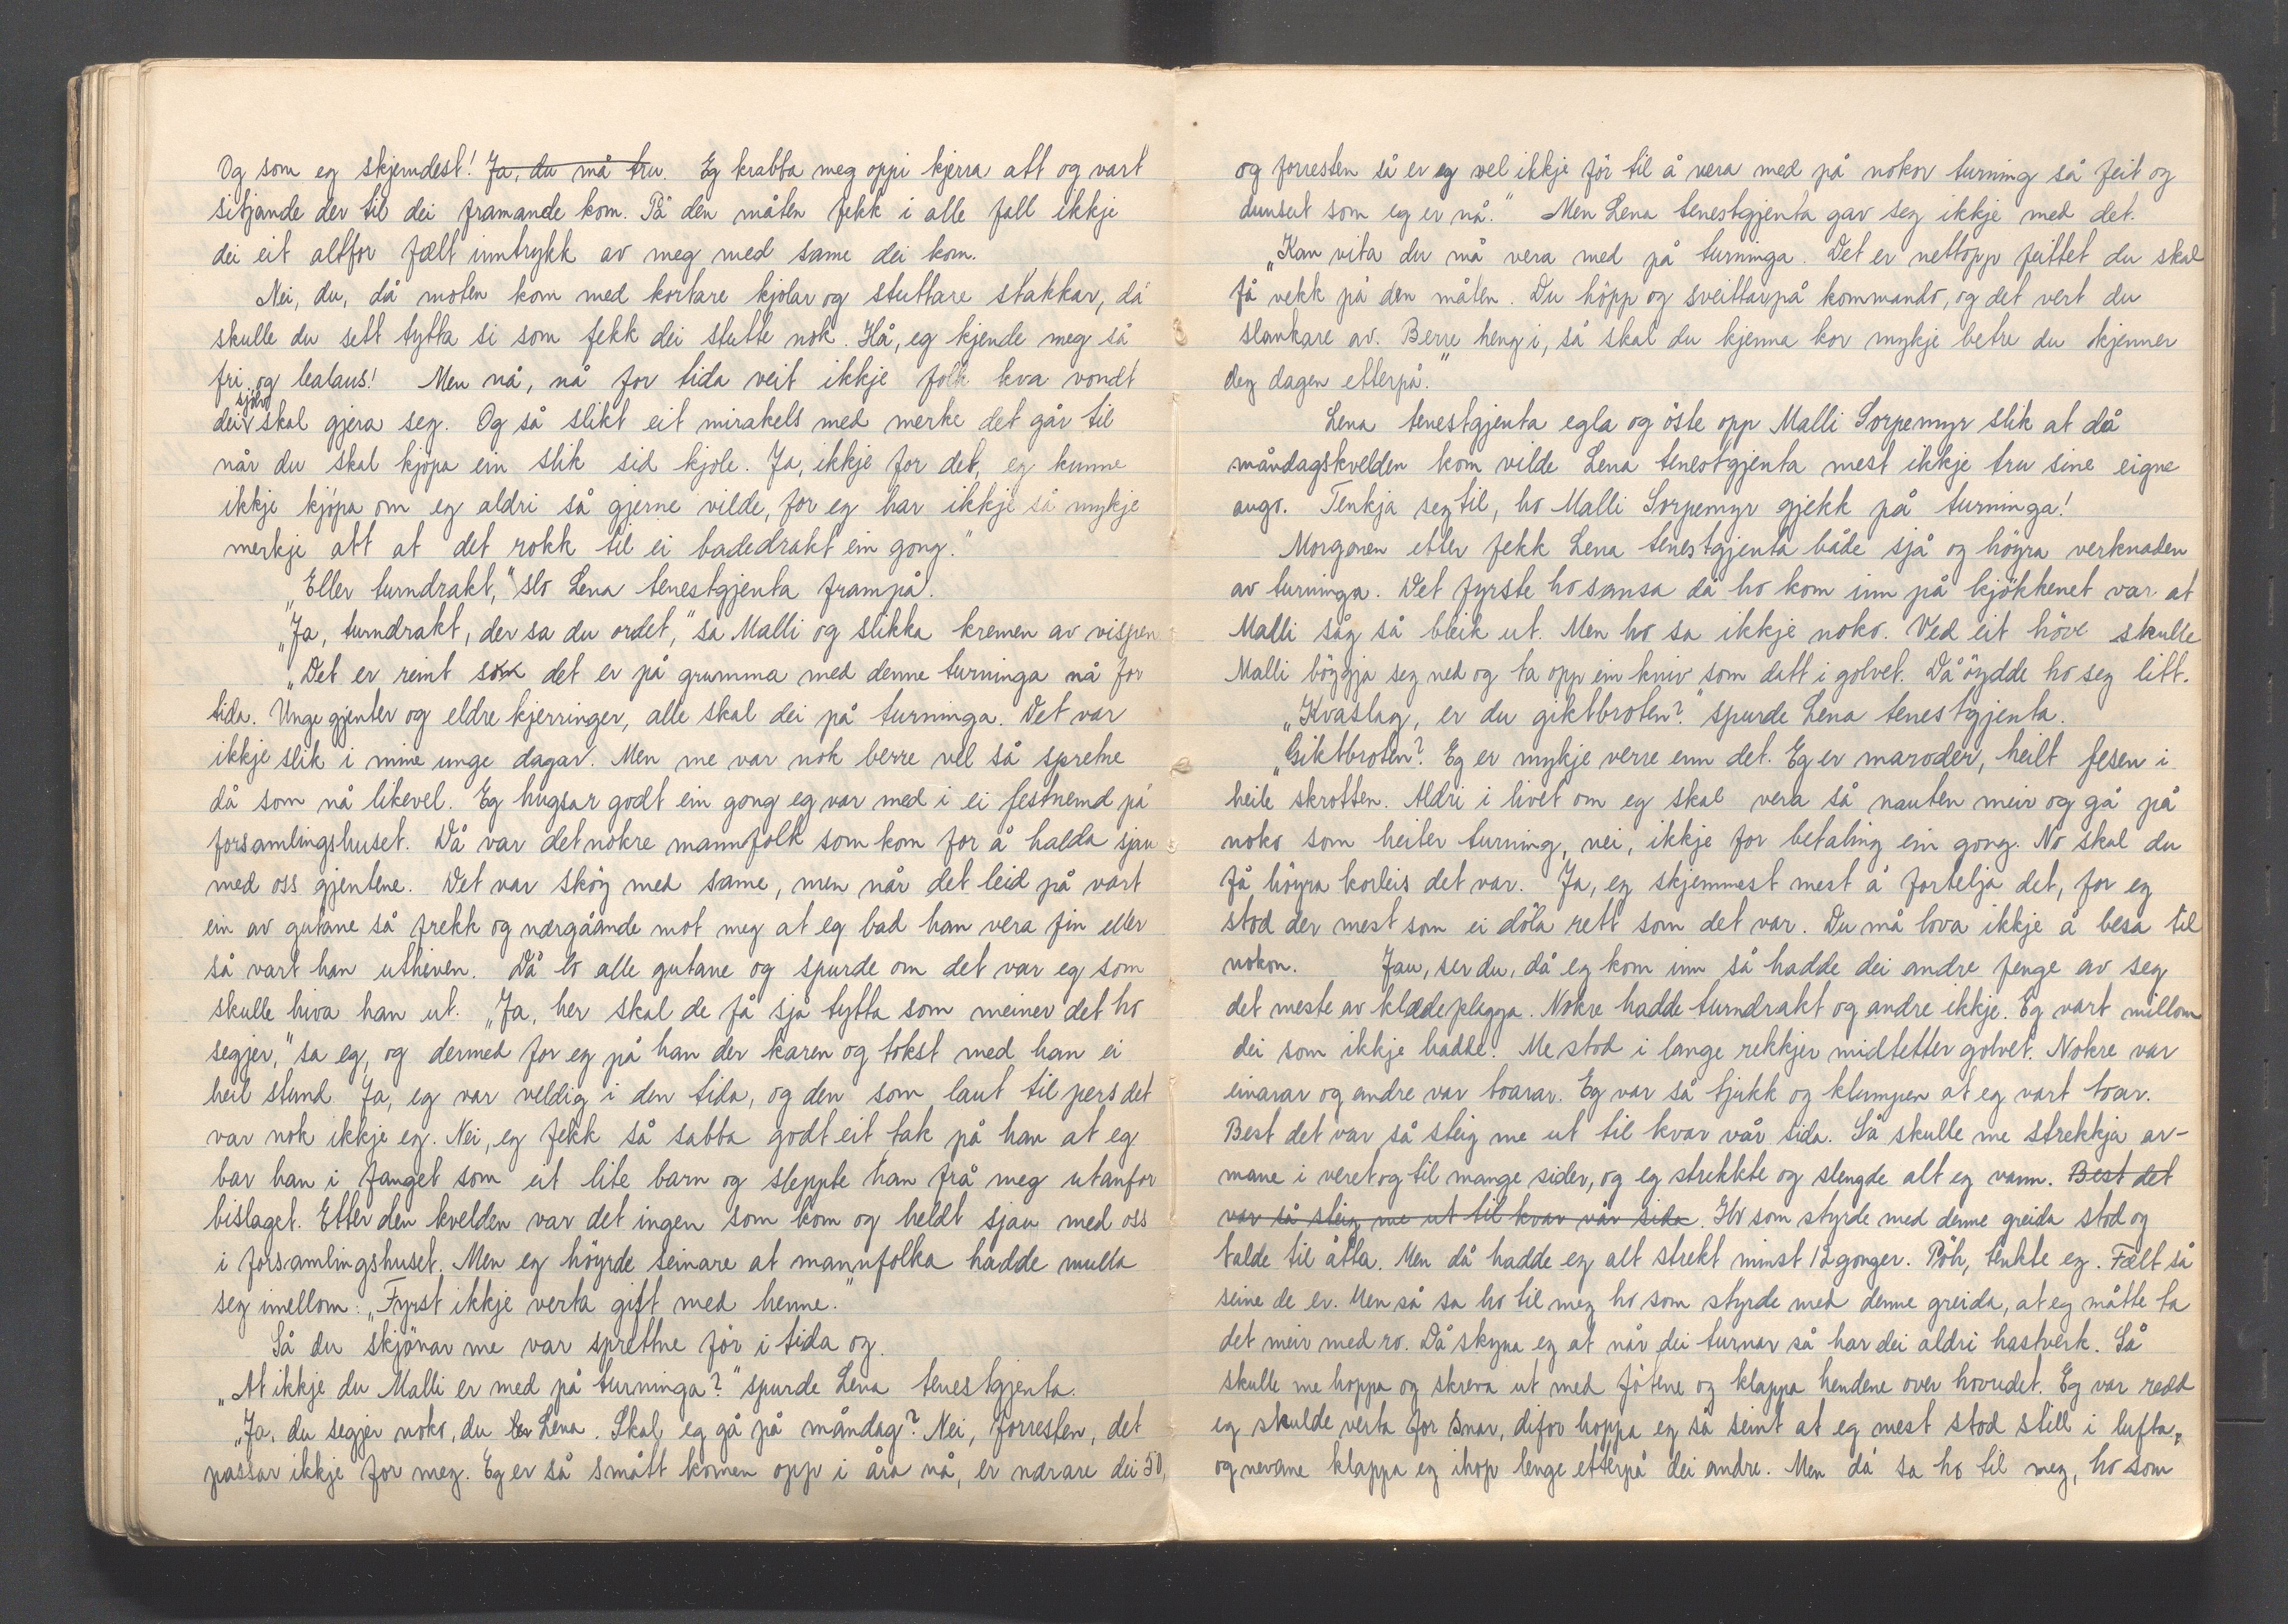 Og som eg skjemdest! Ja, du må tru. Eg krabba meg oppi kjerra att og vart
sitjande der til dei framande kom. På den måten fekk i alle fall ikkje
dei eit altfor fælt inntrykk av meg med same dei kom.
Nei, du, då moten kom med kortare kjolar og stuttare stakkar, då
skulle du sett tytta si som fekk dei stutte nok. Hå, eg kjende meg så
fri og lealaus! Men nå, nå for tida veit ikkje folk kva vondt
dei sjølv skal gjera seg. Og så slikt eit mirakels med merke det går til
når du skal kjöpa ein slik sid kjole. Ja, ikkje for det, eg kunne
ikkje kjöpa om eg aldri så gjerne vilde, for eg har ikkje så mykje
merkje att at det rokk til ei badedrakt ein gong."
„Eller turndrakt," slo Lena tenestgjenta frampå.
„Ja, turndrakt, der sa du ordet," sa Malli og slikka kremen av vispen
„Det er reint som det er på grumma med denne turninga nå for
tida. Unge gjenter og eldre kjerringer, alle skal dei på turninga. Det var
ikkje slik i mine unge dagar. Men me var nok berre vel så spretne
då som nå likevel. Eg hugsar godt ein gong eg var med i ei festnemd på
forsamlingshuset. Då var det nokre mannfolk som kom for å halda sjau
med oss gjentene. Det var sköy med same, men når det leid på vart
ein av gutane så frekk og nærgåande mot meg at eg bad han vera fin eller
så vart han utheven. Då lo alle gutane og spurde om det var eg som
skulle hiva han ut. „Ja, her skal de få sjå tytta som meiner det ho
segjer," sa eg, og dermed for eg på han der karen og tokst med han ei
heil stund. Ja, eg var veldig i den tida, og den som laut til pers det
var nok ikkje eg. Nei, eg fekk så sabba godt eit tak på han at eg
bar han i fanget som eit lite barn og sleppte han frå meg utanfor
bislaget. Etter den kvelden var det ingen som kom og heldt sjau med oss
i forsamlingshuset. Men eg höyrde seinare at mannfolka hadde mulla
seg imellom: „Fyrst ikkje verta gift med henne."
Så du skjönar me var sprettne för i tida og.
„At ikkje du Malli er med på turninga?" spurde Lena tenestgjenta.
„Ja, du segjer noko, du Lena. Skal eg gå på måndag? Nei, forresten, det
passar ikkje for meg. Eg er så smått komen opp i åra nå, er nærare dei 50,
og forresten så er eg vel ikkje för til å vera med på nokor turning så feit og
dunsut som eg er nå." Men Lena tenestgjenta gav seg ikkje med det.
„Kan vita du må vera med på turninga. Det er nettopp feittet du skal
få vekk på den måten. Du höpp og sveittar på kommando, og det vert du
slankare av. Berre heng i, så skal du kjenna kor mykje betre du kjenner
deg dagen etterpå."
Lena tenestgjenta egla og öste opp Malli Sorpemyr slik at då
måndagskvelden kom vilde Lena tenestgjenta mest ikkje tru sine eigne
augo. Tenkja seg til, ho Malli Sorpemyr gjekk på turninga!
Morgonen etter fekk Lena tenestgjenta både sjå og höyra verknaden
av turninga. Det fyrste ho sansa då ho kom inn på kjökkenet var at
Malli såg så bleik ut. Men ho sa ikkje noko. Ved eit höve skulle
Malli böygja seg ned og ta opp ein kniv som datt i golvet. Då öydde ho seg litt.
„Kvaslag, er du giktbroten?" spurde Lena tenestgjenta.
„Giktbroten? Eg er mykje verre enn det. Eg er maroder, heilt fesen i
heile skrotten. Aldri i livet om eg skal vera så nauten meir og gå på
noko som heiter turning, nei, ikkje for betaling ein gong. No skal du
få höyra korleis det var. Ja, eg skjemmest mest å fortelja det, for eg
stod der mest som ei döla rett som det var. Du må lova ikkje å besa til
nokon. Jau, ser du, då eg kom inn så hadde dei andre fenge av seg
det meste av klædeplagga. Nokre hadde turndrakt og andre ikkje. Eg vart millom
dei som ikkje hadde. Me stod i lange rekkjer midtetter golvet. Nokre var
einarar og andre var toarar. Eg var så tjukk og klumpen at eg vart toar.
Best det var så steig me ut til kvar vår sida. Så skulle me strekkja ar-
mane i veret og til mange sider, og eg strekkte og slengde alt eg vann. Best det
var så steig me ut til kvar vår sida. Ho som styrde med denne greida stod og
talde til åtta. Men då hadde eg alt strekt minst 12 gonger. Pöh, tenkte eg. Fælt så
seine de er. Men så sa ho til meg ho som styrde med denne greida, at eg måtte ta
det meir med ro. Då skyna eg at når dei turnar så har dei aldri hastverk. Så
skulle me hoppa og skreva ut med fötene og klappa hendene over hovudet. Eg var redd
eg skulde verta for snar, difor hoppa eg så seint at eg mest stod still i lufta,
og nevane klappa eg ihop lenge etterpå dei andre. Men då sa ho til meg, ho som